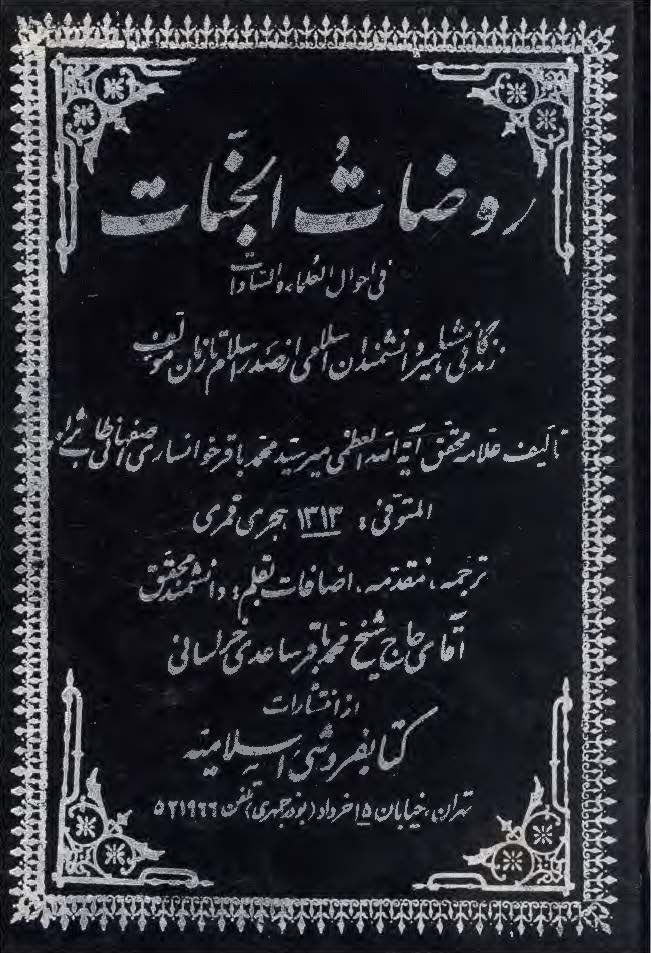 روضاتُ الجنّات
فی احوال العُلماء و السّادات
زندگانی مشاهیر دانشمندان اسلامی از صدر اسلام تا زمان مؤلف
تألیف علامه محقق آیة الله العظمی میر سید محمد باقر خوانساری اصفهانی طاب ثراه
المتوفی: ۱۳۱۳ هجری قمری
ترجمه، مقدمه، اضافات بقلم: دانشمند محقق
آقای حاج شیخ محمد باقر ساعدی خراسانی
از انتشارات
کتابفروشی اسلامیه
تهران، خیابان ۱۵ خرداد (بوذرجمهری) تلفن ۵۲۱۹۶۶